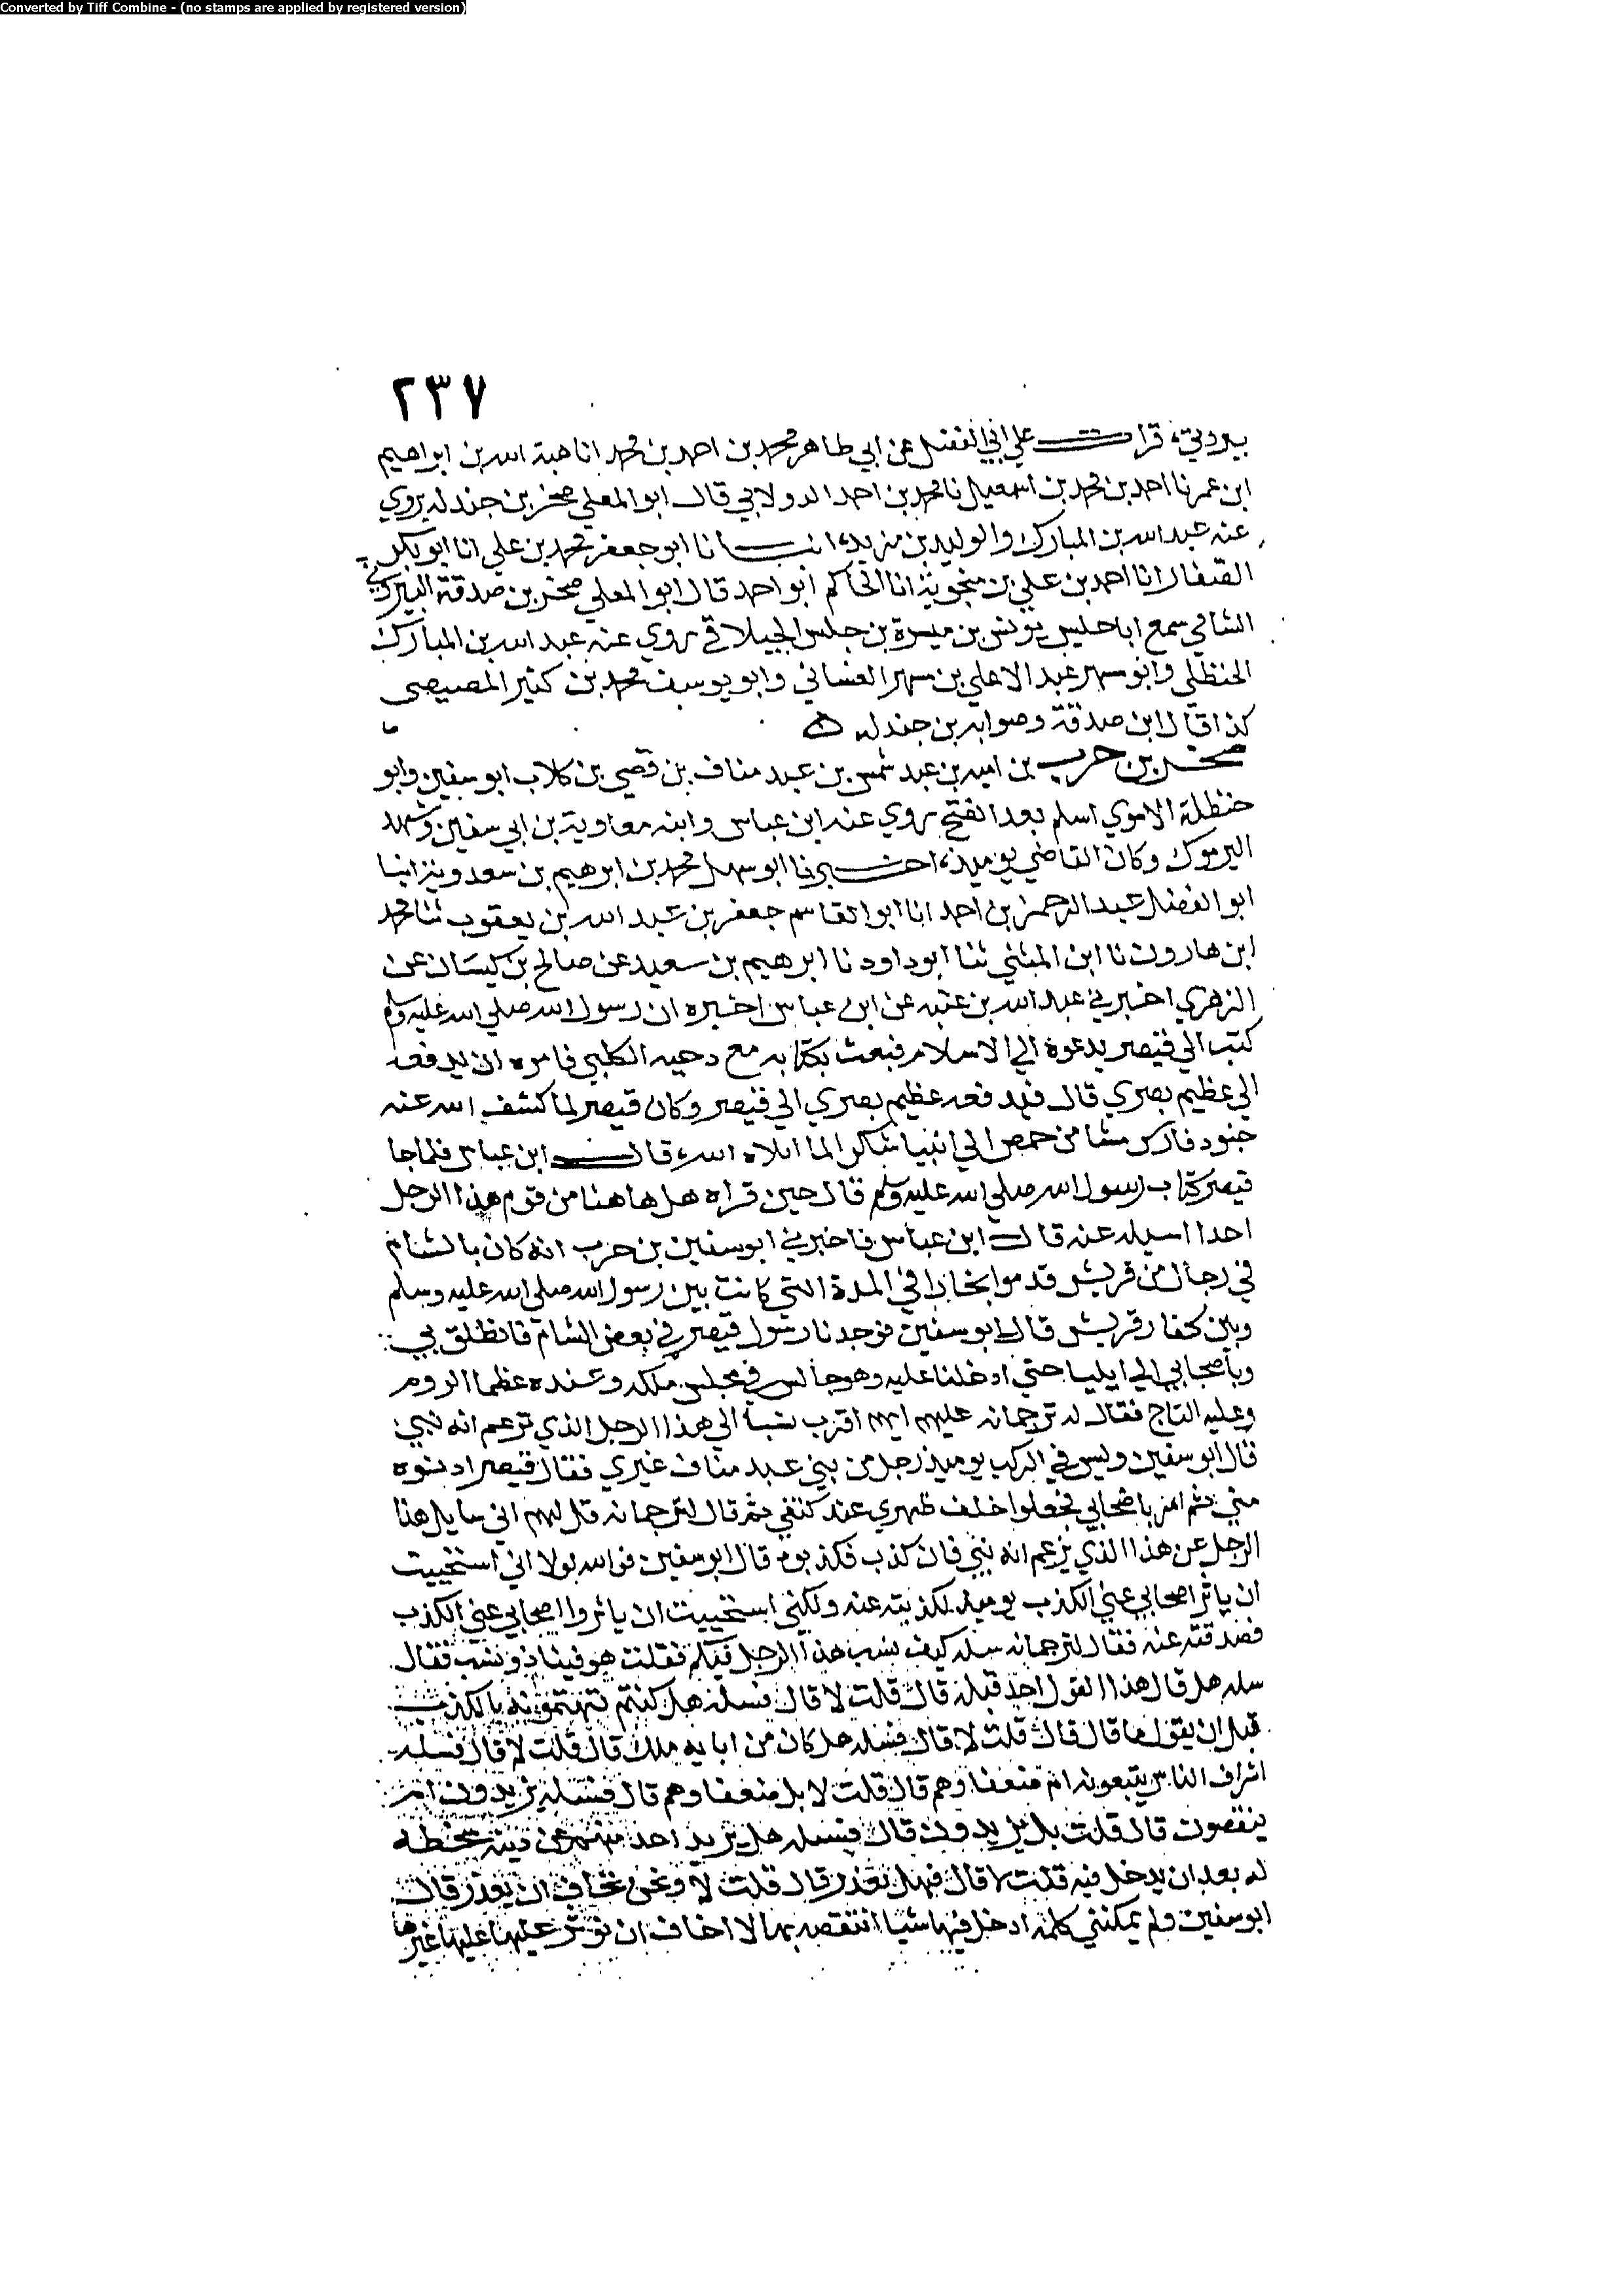 Converted by Tiff Combine - (no stamps are applied by registered version)
٢٣٧
بيروتي، قرات علي ابي الفضل عن ابي طاهر محمد بن احمد بن محمد انا هبة الله بن ابراهيم
ابن عمر نا احمد بن محمد بن اسمعيل نا محمد بن احمد الدولابي قال ابو المعلي صخر بن جندله يروي
عنه عبد الله بن المبارك والوليد بن مزيد، انبانا ابو جعفر محمد بن علي انا ابو بكر
الصفار انا احمد بن علي بن منجويه انا الحاكم ابو احمد قال ابو المعلي صخر بن صدقة البيروتي
الشامي سمع ابا حلبس يونس بن ميسرة بن حلبس الجيلاني روي عنه عبد الله بن المبارك
الحنظلي وابو مسهر عبد الاعلي بن مسهر الغساني وابو يوسف محمد بن كثير المصيصي
كذا قال ابن صدقة وصوابه بن جندله ه
صخر بن حرب بن اميه بن عبد شمس بن عبد مناف بن قصي بن كلاب ابو سفين وابو
حنظلة الاموي اسلم بعد الفتح روي عنه ابن عباس وابنه معاوية بن ابي سفين وشهد
اليرموك وكان القاضي يوميذ، اخبرنا ابو سهل محمد بن ابرهيم بن سعدويه انبا
ابو الفضل عبد الرحمن بن احمد انا ابو القاسم جعفر بن عبد الله بن يعقوب ثنا محمد
ابن هارون نا ابن المثني ثنا ابو داود نا ابرهيم بن سعيد عن صالح بن كيسان عن
الزهري اخبرني عبد الله بن عتبه عن ابن عباس اخبره ان رسول الله صلي الله عليه وسلم
كتب الي قيصر يدعوه الي الاسلام فبعث بكتابه مع دحيه الكلبي فامره ان يدفعه
الي عظيم بصري قال فدفعه عظيم بصري الي قيصر وكان قيصر لما كشف الله عنه
جنود فارس مشا من حمص الي شاكرا لما ابلاه الله، قال ابن عباس فلما جا
قيصر كتاب رسول الله صلي الله عليه وسلم قال حين قراه هل هاهنا من قوم هذا الرجل
احدا اسيله عنه قال ابن عباس فاخبرني ابو سفين بن حرب انه كان بالشام
في رجال من قريش قدموا تجارا في المدة التي كانت بين رسول الله صلي الله عليه وسلم
وبين كفار قريش قال ابو سفين فوجدنا رسول قيصر في بعض الشام فانطلق بي
وباصحابي الي ايليا حتي ادخلنا عليه وهو جالس في مجلس ملكه وعنده عظما الروم
وعليه التاج فقال له ترجمانه عليهم ايهم اقرب نسبا الي هذا الرجل الذي تزعم انه نبي
قال ابو سفين وليس في الركب يوميذ رجل من بني عبد مناف غيري فقال قيصر ادنوه
مني ثم امر باصحابي فجعلوا خلف ظهري عند كتفي ثم قال لترجمانه قل لهم اني سايل هذا
الرجل عن هذا الذي يزعم انه نبي فان كذب فكذبوه قال ابو سفين فوالله لولا اني استحييت
ان ياثر اصحابي عني الكذب يوميذ لكذبته عنه ولكني استحييت ان ياثروا اصحابي عني الكذب
فصدقته عنه فقال لترجمانه سله كيف نسب هذا الرجل فيكم فقلت هو فينا ذو نسب فقال
سله هل قال هذا القول احد قبله قال قلت لا قال فسله هل كنتم تتهمونه بالكذب
قبل ان يقول ما قال قال قلت لا قال فسله هل كان من ابايه ملك قال قلت لا قال فسله
اشراف الناس يتبعونه ام ضعفاوهم قال قلت لا بل ضعفاوهم قال فسله يزيدون ام
ينقصون قال قلت بل يزيدون قال فسله هل يريد احد منهم عن دينه سخطه
له بعد ان يدخل فيه قلت لا قال فهل يغدر قال قلت لا ونحن نخاف ان يغدر قال
ابو سفين ولم يمكنني كلمه ادخل فيها شيا انتقصه بها لا اخاف ان توثر عليها عليها غيرها